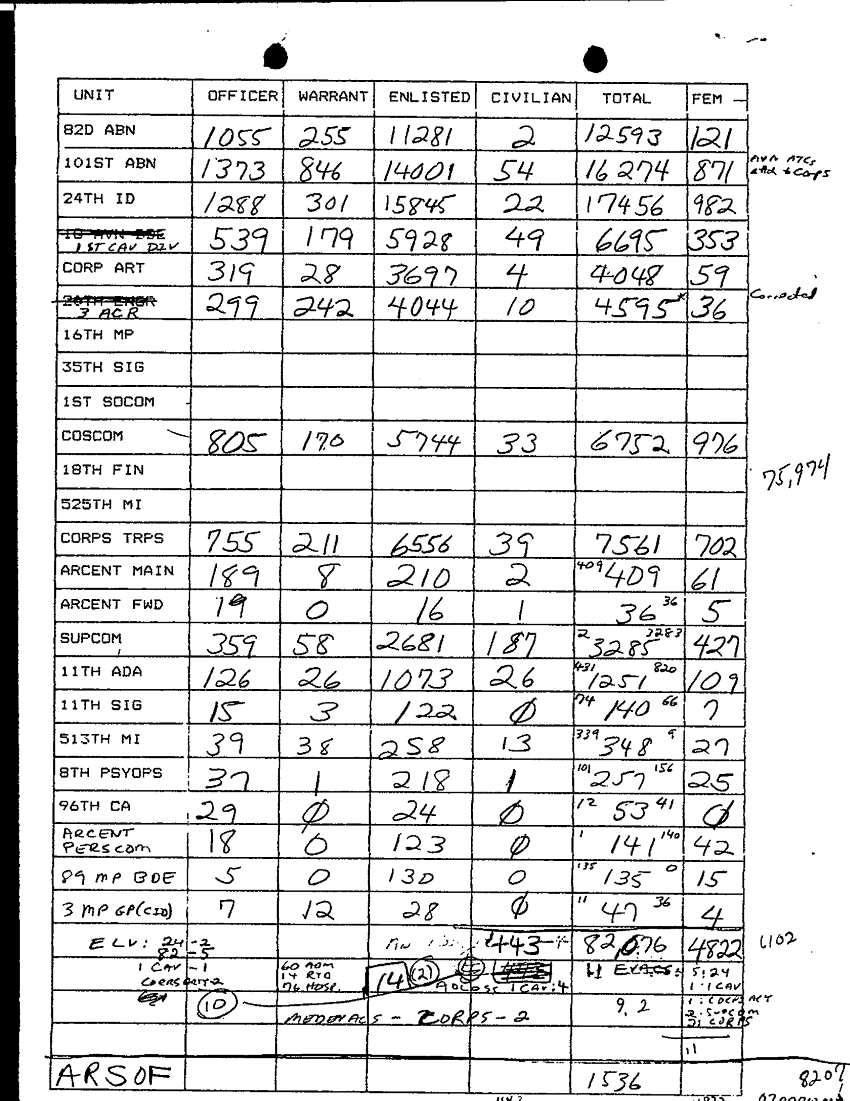 UNIT OFFICER WARRANT ENLISTED CIVILIAN TOTAL FEM
82D ABN 1055 255 11281 2 12593 121
101ST ABN 1373 846 14001 54 16274 871
24TH ID 1288 301 15845 22 17456 982
1ST CAV DIV 539 179 5928 49 6695 353
CORP ART 319 28 3697 4 4048 59
3 ACR 299 242 4044 10 4595* 36 Corrected
16TH MP
35TH SIG
1ST SOCOM
COSCOM 805 170 5744 33 6752 976
18TH FIN 75,974
525TH MI
CORPS TRPS 755 211 6556 39 7561 702
ARCENT MAIN 189 8 210 2 409 409 61
ARCENT FWD 19 0 16 1 36 36 5
SUPCOM 359 58 2681 187 2 3285 3283 427
11TH ADA 126 26 1073 26 431 1251 820 109
11TH SIG 15 3 122 Ø 74 140 66 7
513TH MI 39 38 258 13 339 348 9 27
8TH PSYOPS 37 1 218 1 101 257 156 25
96TH CA 29 Ø 24 Ø 12 53 41 Ø
ARCENT PERSCOM 18 0 123 Ø 1 141 140 42
89 MP BDE 5 0 130 0 135 135 0 15
3 MP GP(CID) 7 12 28 Ø 11 47 36 4
ELV: 24-2 443 82,076 4822 1102
82-5
1 CAV-1 60 ADM 14 (2) 11 EVACS: 5:24
14 RTD 1:1CAV
76 HOSP. 1 CAV:4
(10) MEDEVACS - CORPS-2 9.2
11
ARSOF 1536 8207